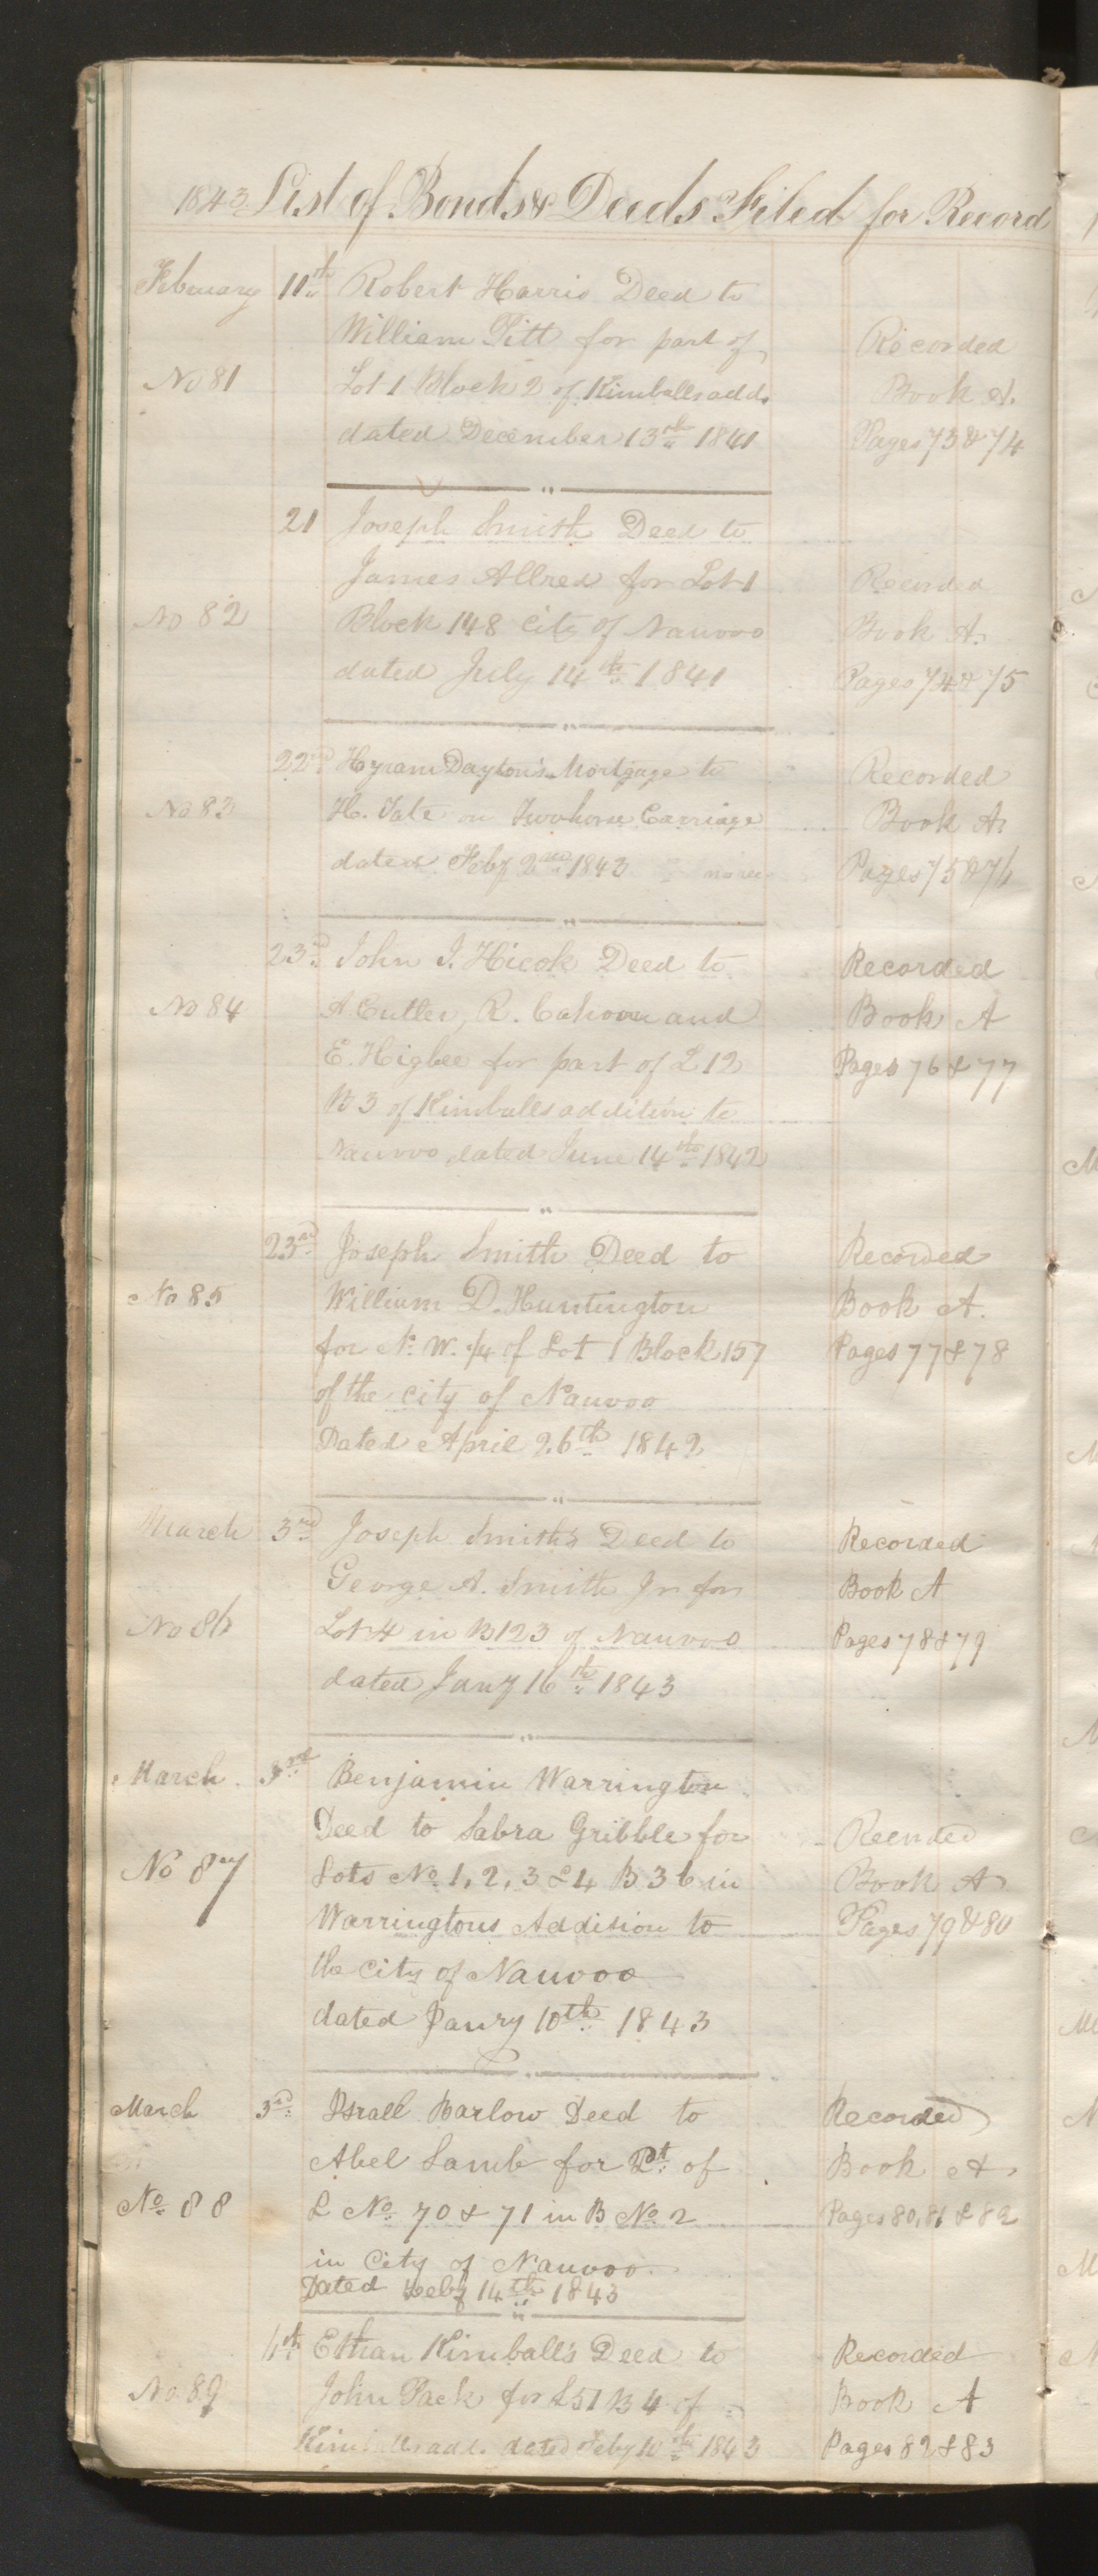 1843 List of Bonds & Deeds Filed for Record
February 11th Robert Harris Deed to
William Pitt for part of Recorded
No 81 Lot 1 Block 2 of Kimballs add. Book A.
dated December 13th 1841 Pages 73 & 74
21 Joseph Smith Deed to
James Allred for Lot 1 Recorded
No 82 Block 148 City of Nauvoo Book A.
dated July 14th 1841 Pages 74 & 75
22nd Hyram Dayton's Mortgage to Recorded
No 83 H. Tate on Twohorse Carriage Book A.
dated Feby 2nd 1843 Pages 75 & 76
23rd John I. Hicok Deed to Recorded
No 84 A Cutler, R. Cahoon and Book A
E. Higbee for part of L 12 Pages 76 & 77
B 3 of Kimballs addition to
Nauvoo dated June 14th 1842
23rd Joseph Smith Deed to Recorded
No 85 William D. Huntington Book A.
for N. W. 1/4 of Lot 1 Block 157 Pages 77 & 78
of the city of Nauvoo
Dated April 26th 1842
March 3rd Joseph Smith's Deed to Recorded
George A. Smith Jr for Book A
No 86 Lot 4 in B 123 of Nauvoo Pages 78 & 79
dated Jany 16th 1843
March 3rd Benjamin Warrington
Deed to Sabra Gribble for Recorded
No 87 Lots No. 1, 2, 3 & 4 B 36 in Book A
Warringtons Addision to Pages 79 & 80
the City of Nauvoo
dated Janry 10th 1843
March 3rd Israll Barlow Deed to Recorded
Abel Lamb for Pt. of Book A
No. 88 L No. 70 & 71 in B No. 2 Pages 80, 81 & 82
in City of Nauvoo.
Dated Feby 14th 1843
4th Ethan Kimball's Deed to Recorded
No 89 John Pack for L 51 B 4 of Book A
Kimballs add. dated Feby 10th 1843 Pages 82 & 83